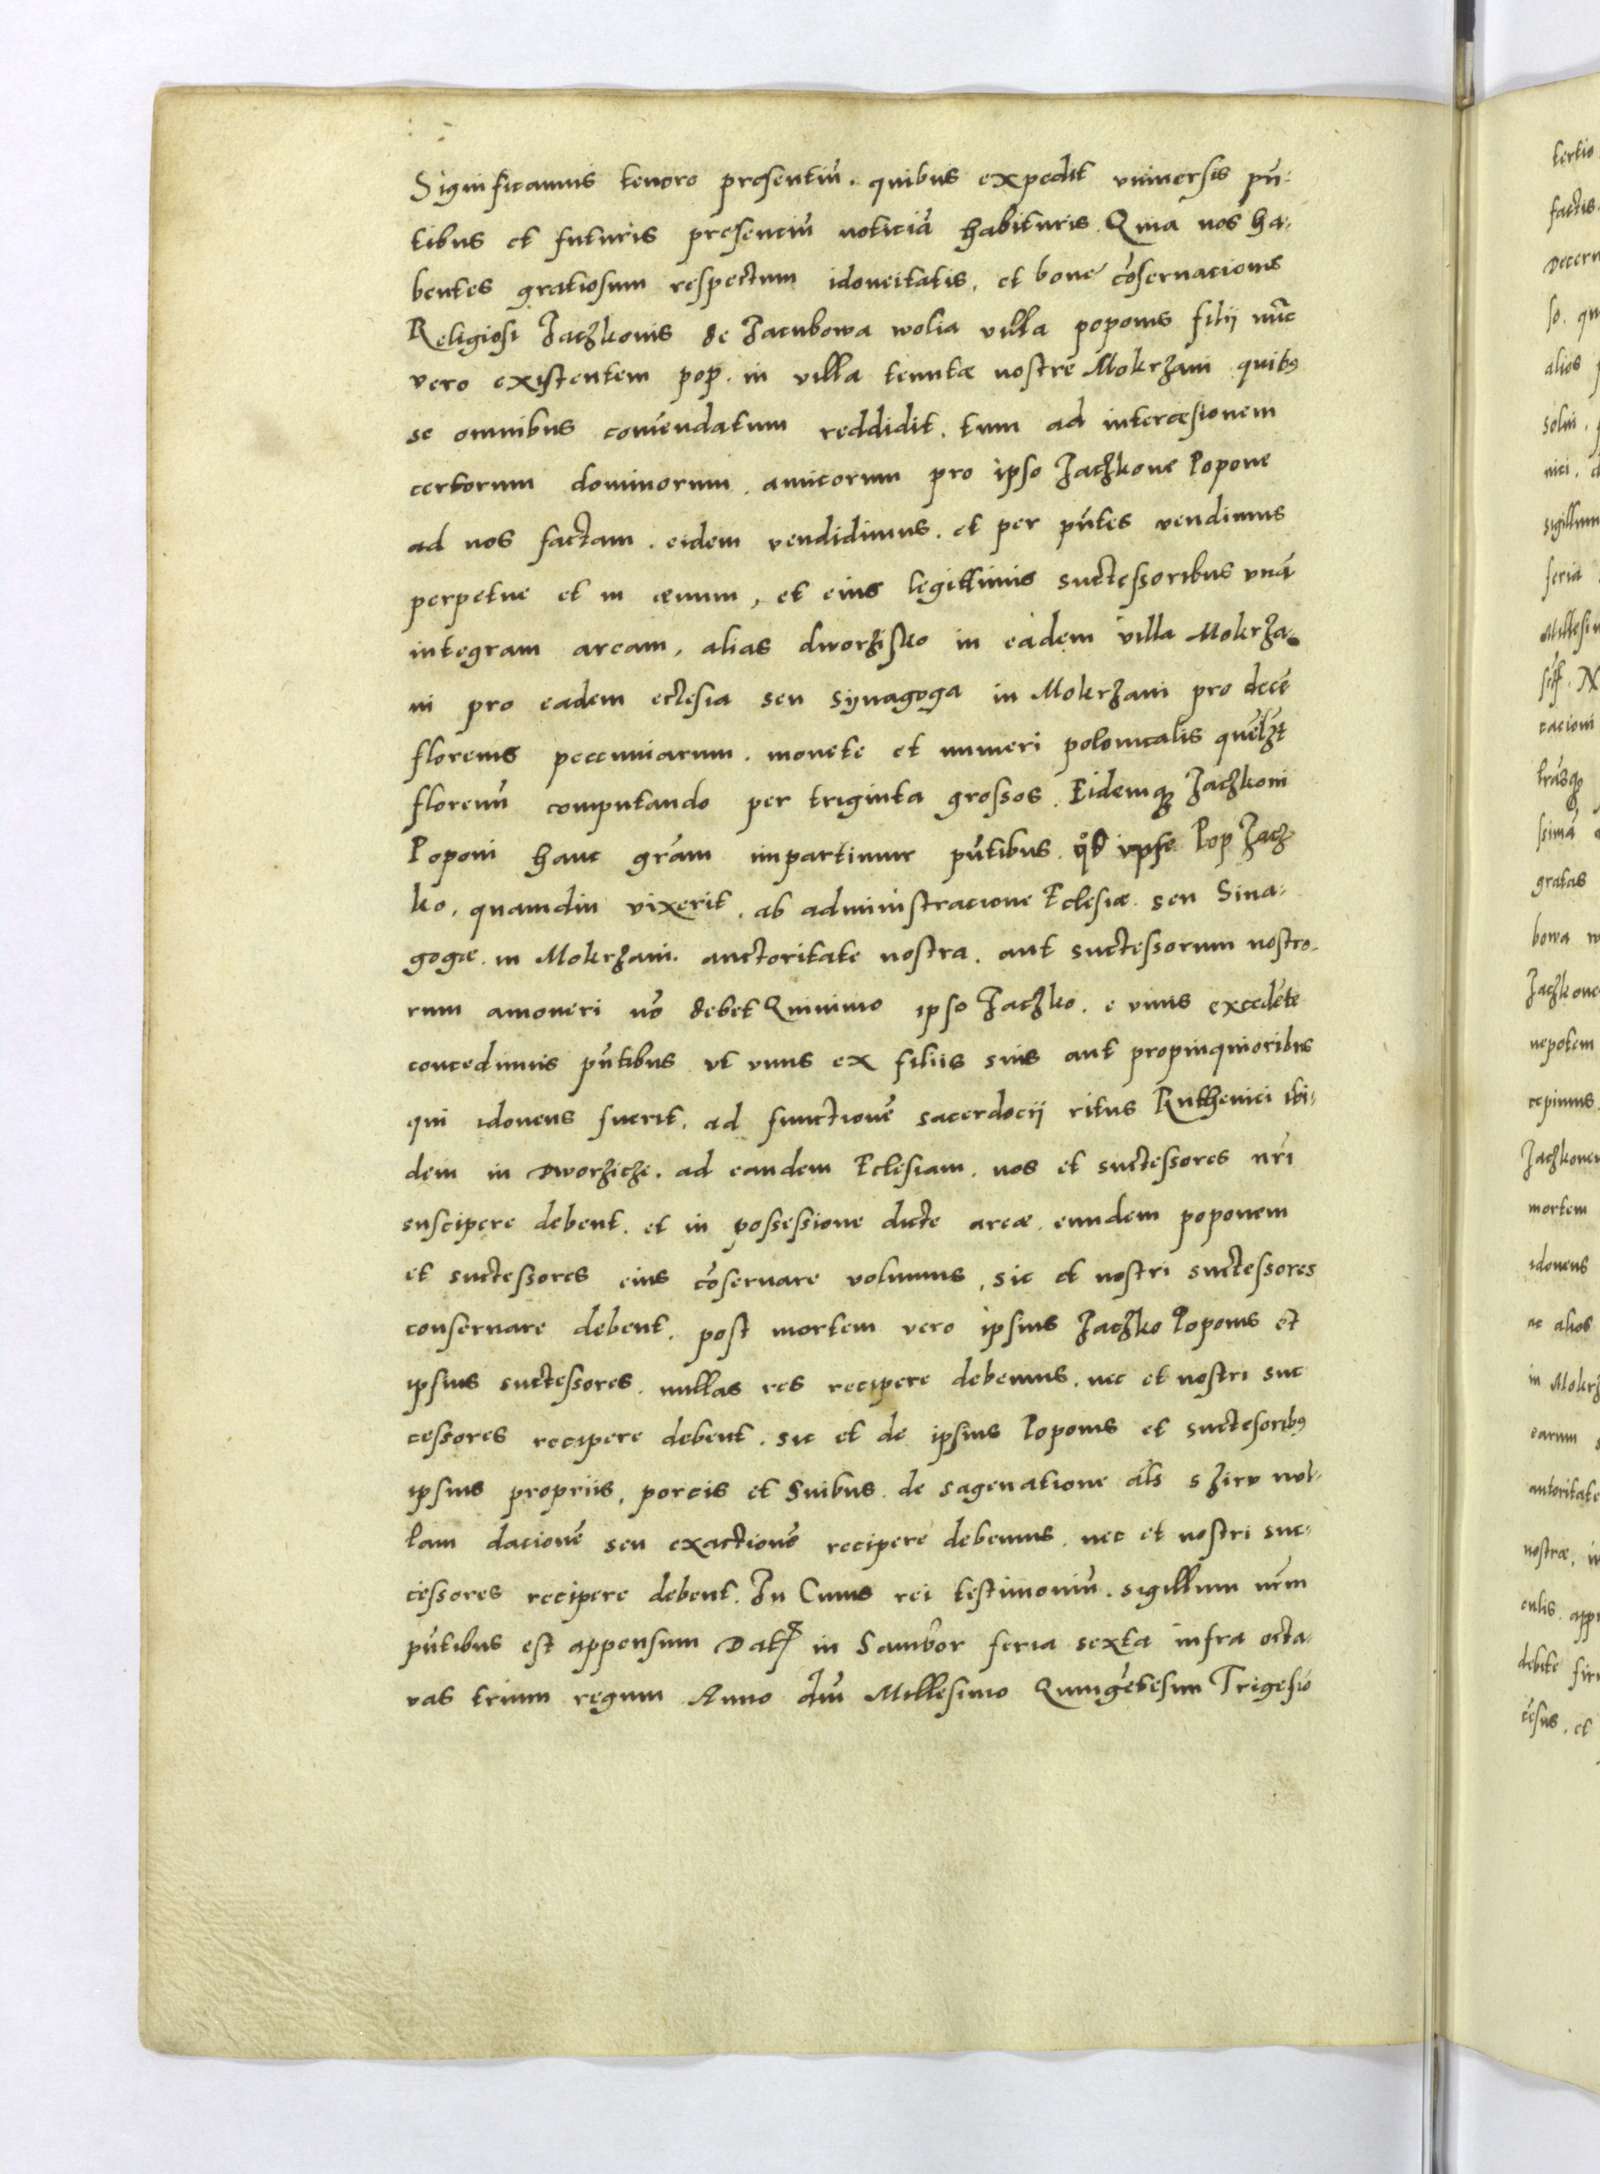 Significamus tenore presentiũ. quibus expedit vniversis pñ-
tibus et futuris presenciũ noticiã habituris. Quia nos ha-
bentes gratiosum respectum idoneitatis, et bone cõseruacionis
Religiosi Jaczkonis de Jacubowa wolia villa poponis filii nũc
vero existentem pop. in villa tenutæ nostre Mokrzani quibꝰ
se omnibus com̃endatum reddidit. tum ad intercæsionem
certorum dominorum. amicorum pro ipso Jaczkone Popone
ad nos factam. eidem vendidimus. et per pñtes vendimus
perpetue et in æuum, et eius legittimis suctessoribus vnã
integram aream, alias dworzisko in eadem villa Mokrza-
ni pro eadem ectesia seu synagoga in Mokrzani pro decẽ
florenis peccuniarum. monete et numeri polonicalis quẽlꝫt
florenũ computando per triginta grossos. Eidemqꝫ Jaczkoni
Poponi hanc grãm impartimur pñtibus. qđ ipse Pop Jacz
ko, quamdiu vixerit. ab administracione Eclesiæ seu Sina-
gogæ in Mokrzani. auctoritate nostra. aut suctessorum nostro-
rum amoueri nõ debet Quinimo ipso Jaczko. e viuis excedẽte
concedimus pñtibus vt vnus ex filiis suis aut propinquioribus
qui idoneus fuerit. ad functionẽ sacerdocii ritus Ruthenici ibi-
dem in Dworzicze. ad eandem Eclesiam. nos et suctessores nr̃i
suscipere debent. et in possessione dicte areæ eundem poponem
et suctessores eius cõseruare volumus, sic et nostri suctessores
conseruare debent. post mortem vero ipsius Jaczko Poponis et
ipsius suctessores. nullas res recipere debemus. nec et nostri suc
cessores recipere debent. sic et de ipsius Poponis et suctesoribꝰ
ipsius propriis, porcis et Suibus de sagenatione als̃ s ziru nul-
lam dacionẽ seu exactionẽ recipere debemus. nec et nostri suc-
cessores recipere debent. In Cuius rei testimoniũ. sigillum nr̃m
pñtibus est appensum Datꝭ in Sambor feria sexta infra octa-
uas trium regum Anno dñi Millesimo Quingẽtesim Trigesio